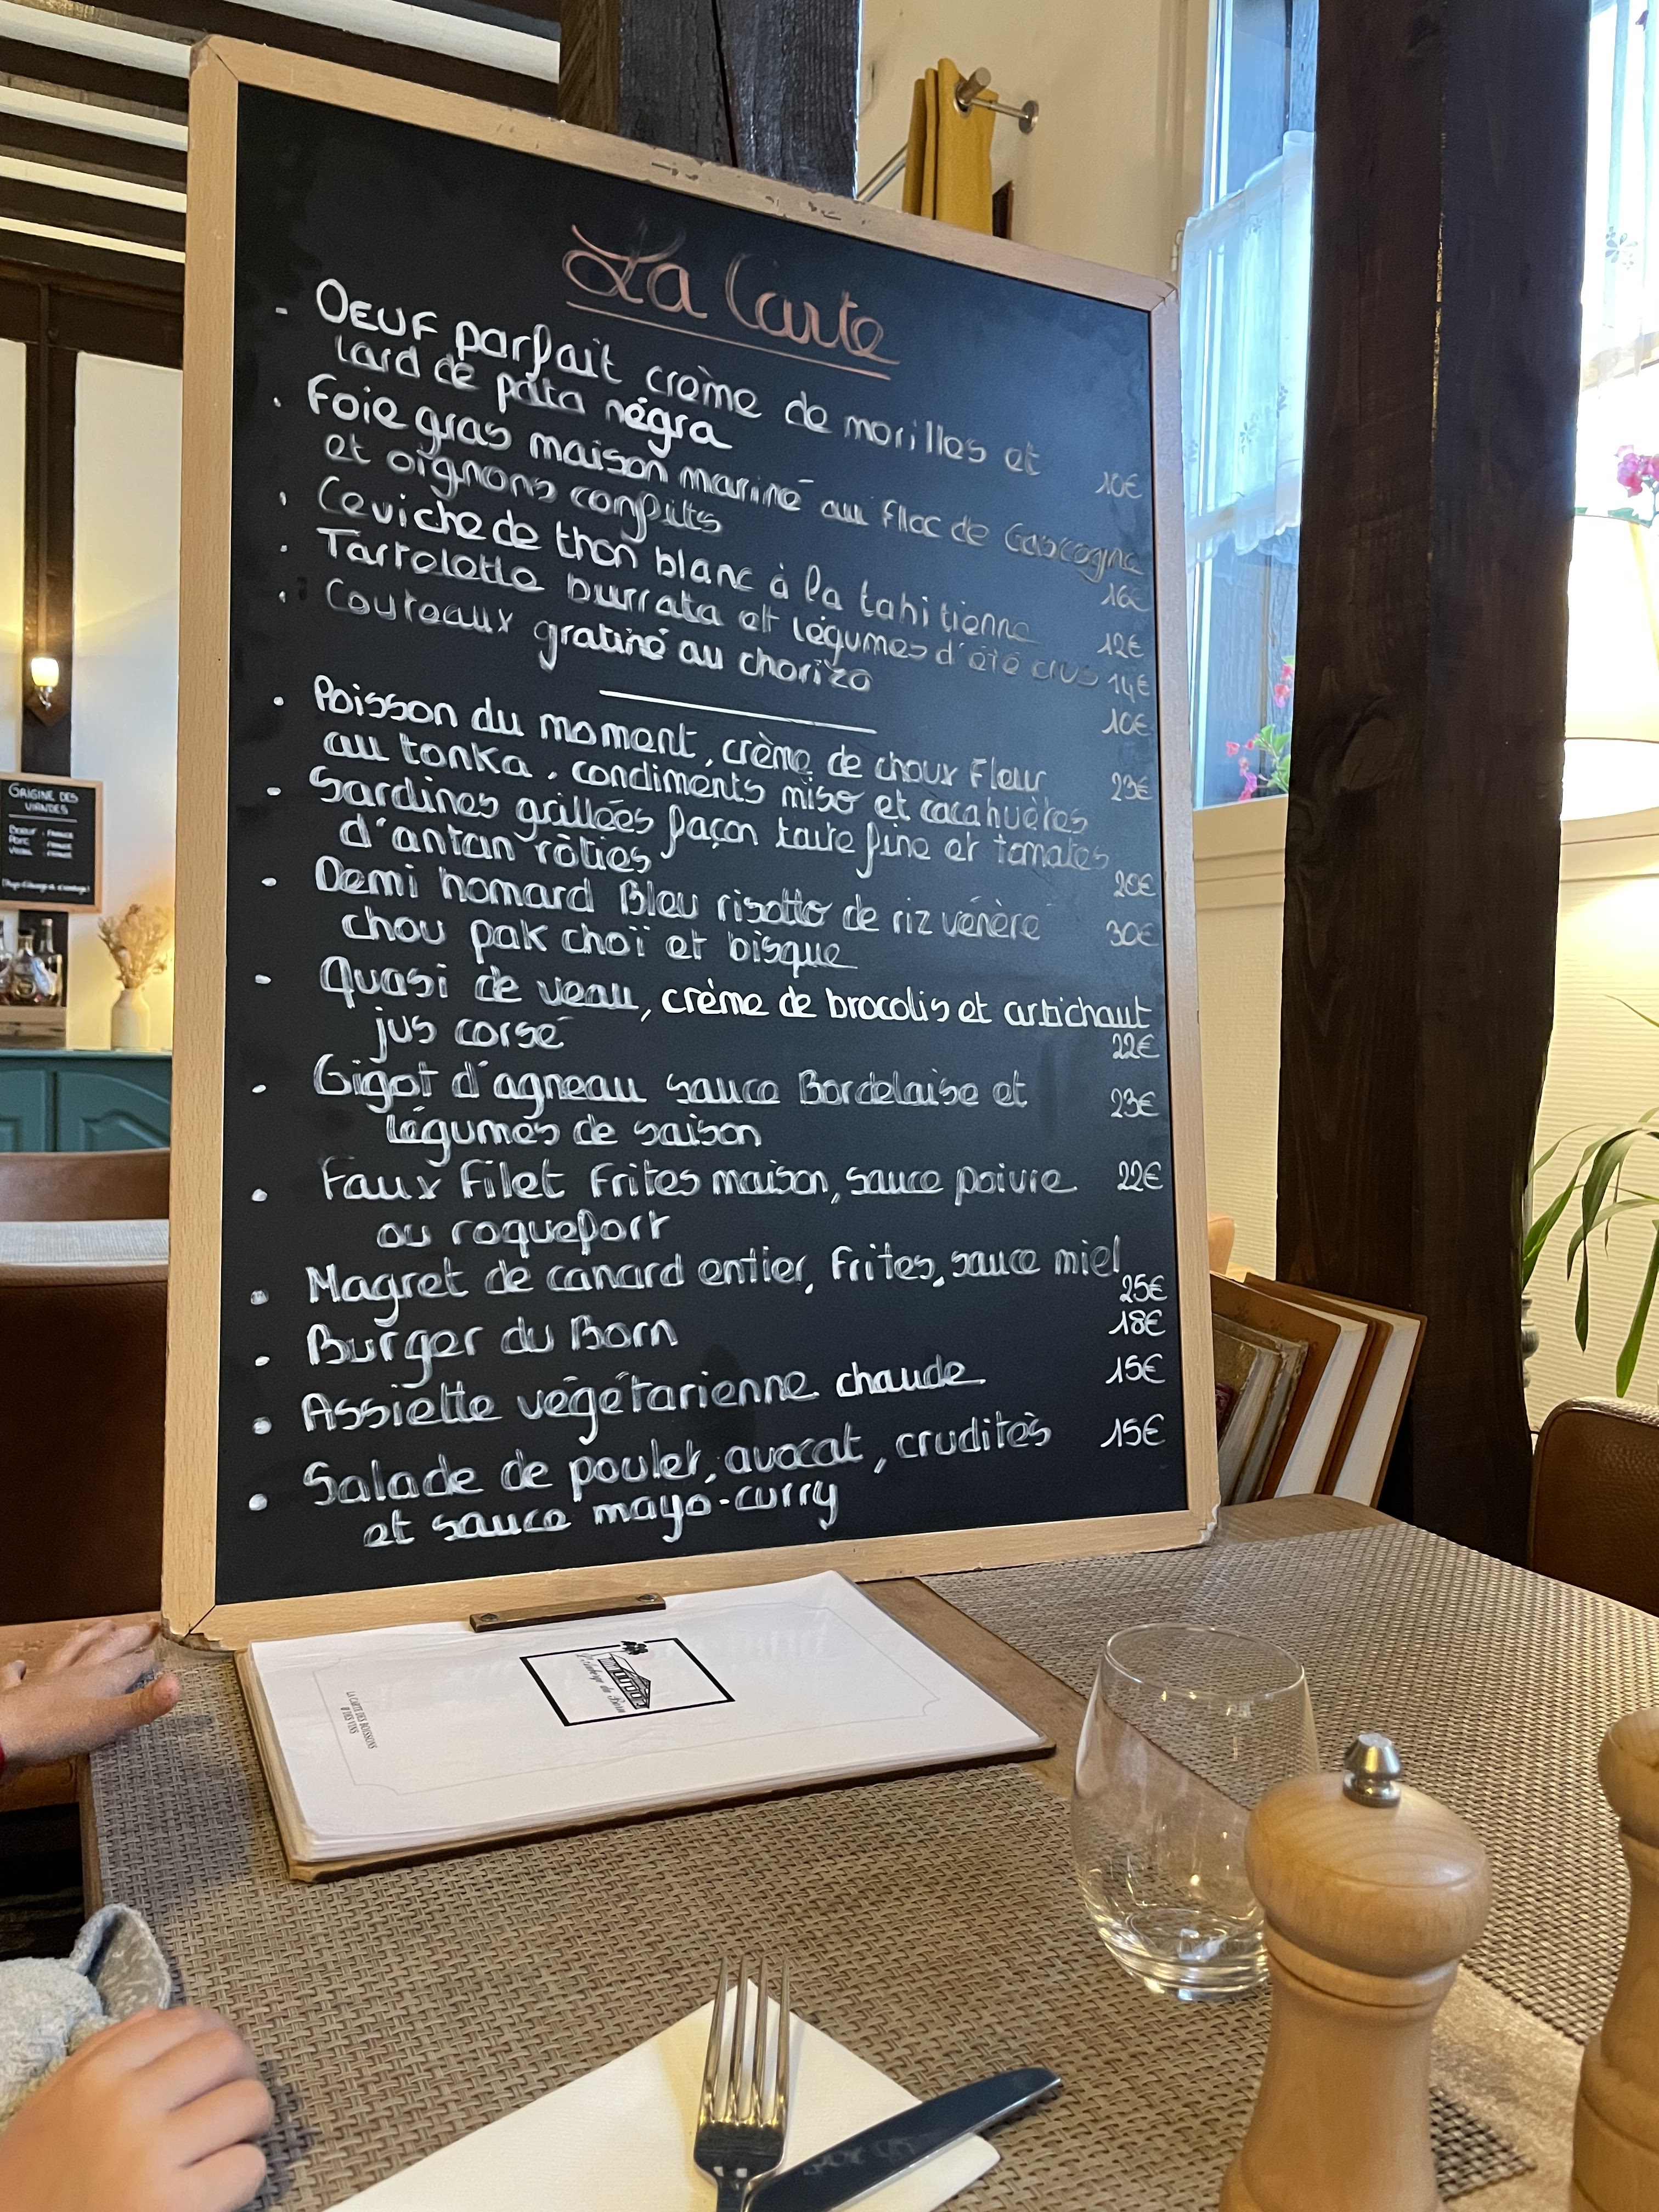 La Carte
- OEUF parfait crème de morilles et
lard de pata négra 10€
. Foie gras maison mariné au Floc de Gascogne
et oignons confits 16€
. Ceviche de thon blanc à la tahitienne 12€
. Tartelette burrata et légumes d'été crus 14€
. Couteaux gratiné au chorizo 10€
. Poisson du moment, crème de choux Fleur 23€
au tonka, condiments miso et cacahuètes
. Sardines grillées façon tarte fine et tomates
d'antan rôties 20€
. Demi homard Bleu risotto de riz vénéré 30€
chou pak choï et bisque
. Quasi de veau, crème de brocolis et artichaut
jus corsé 22€
. Gigot d'agneau sauce Bordelaise et 23€
légumes de saison
. Faux Filet Frites maison, sauce poivre 22€
ou roquefort
. Magret de canard entier, Frites, sauce miel
25€
. Burger du Born 18€
. Assiette végétarienne chaude 15€
. Salade de poulet, avocat, crudités 15€
et sauce mayo-curry
ORIGINE DES
VIANDES
BOEUF : FRANCE
PORC : FRANCE
VEAU : FRANCE
L'Auberge du Born
LA CARTE DES BOISSONS
& DES VINS